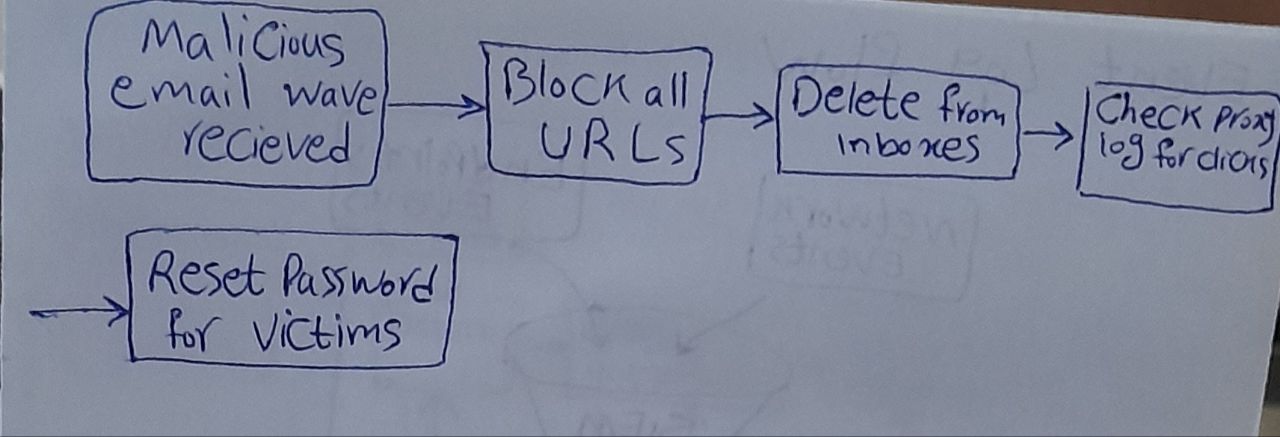 Malicious
email wave
recieved
Block all
URLs
Delete from
inboxes
Check proxy
log for clicks
Reset Password
for victims